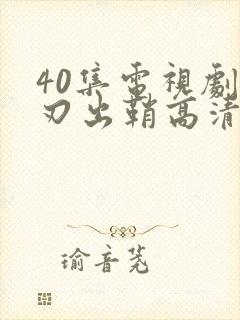 40集電視劇
刃出鞘高清
瑜音茺